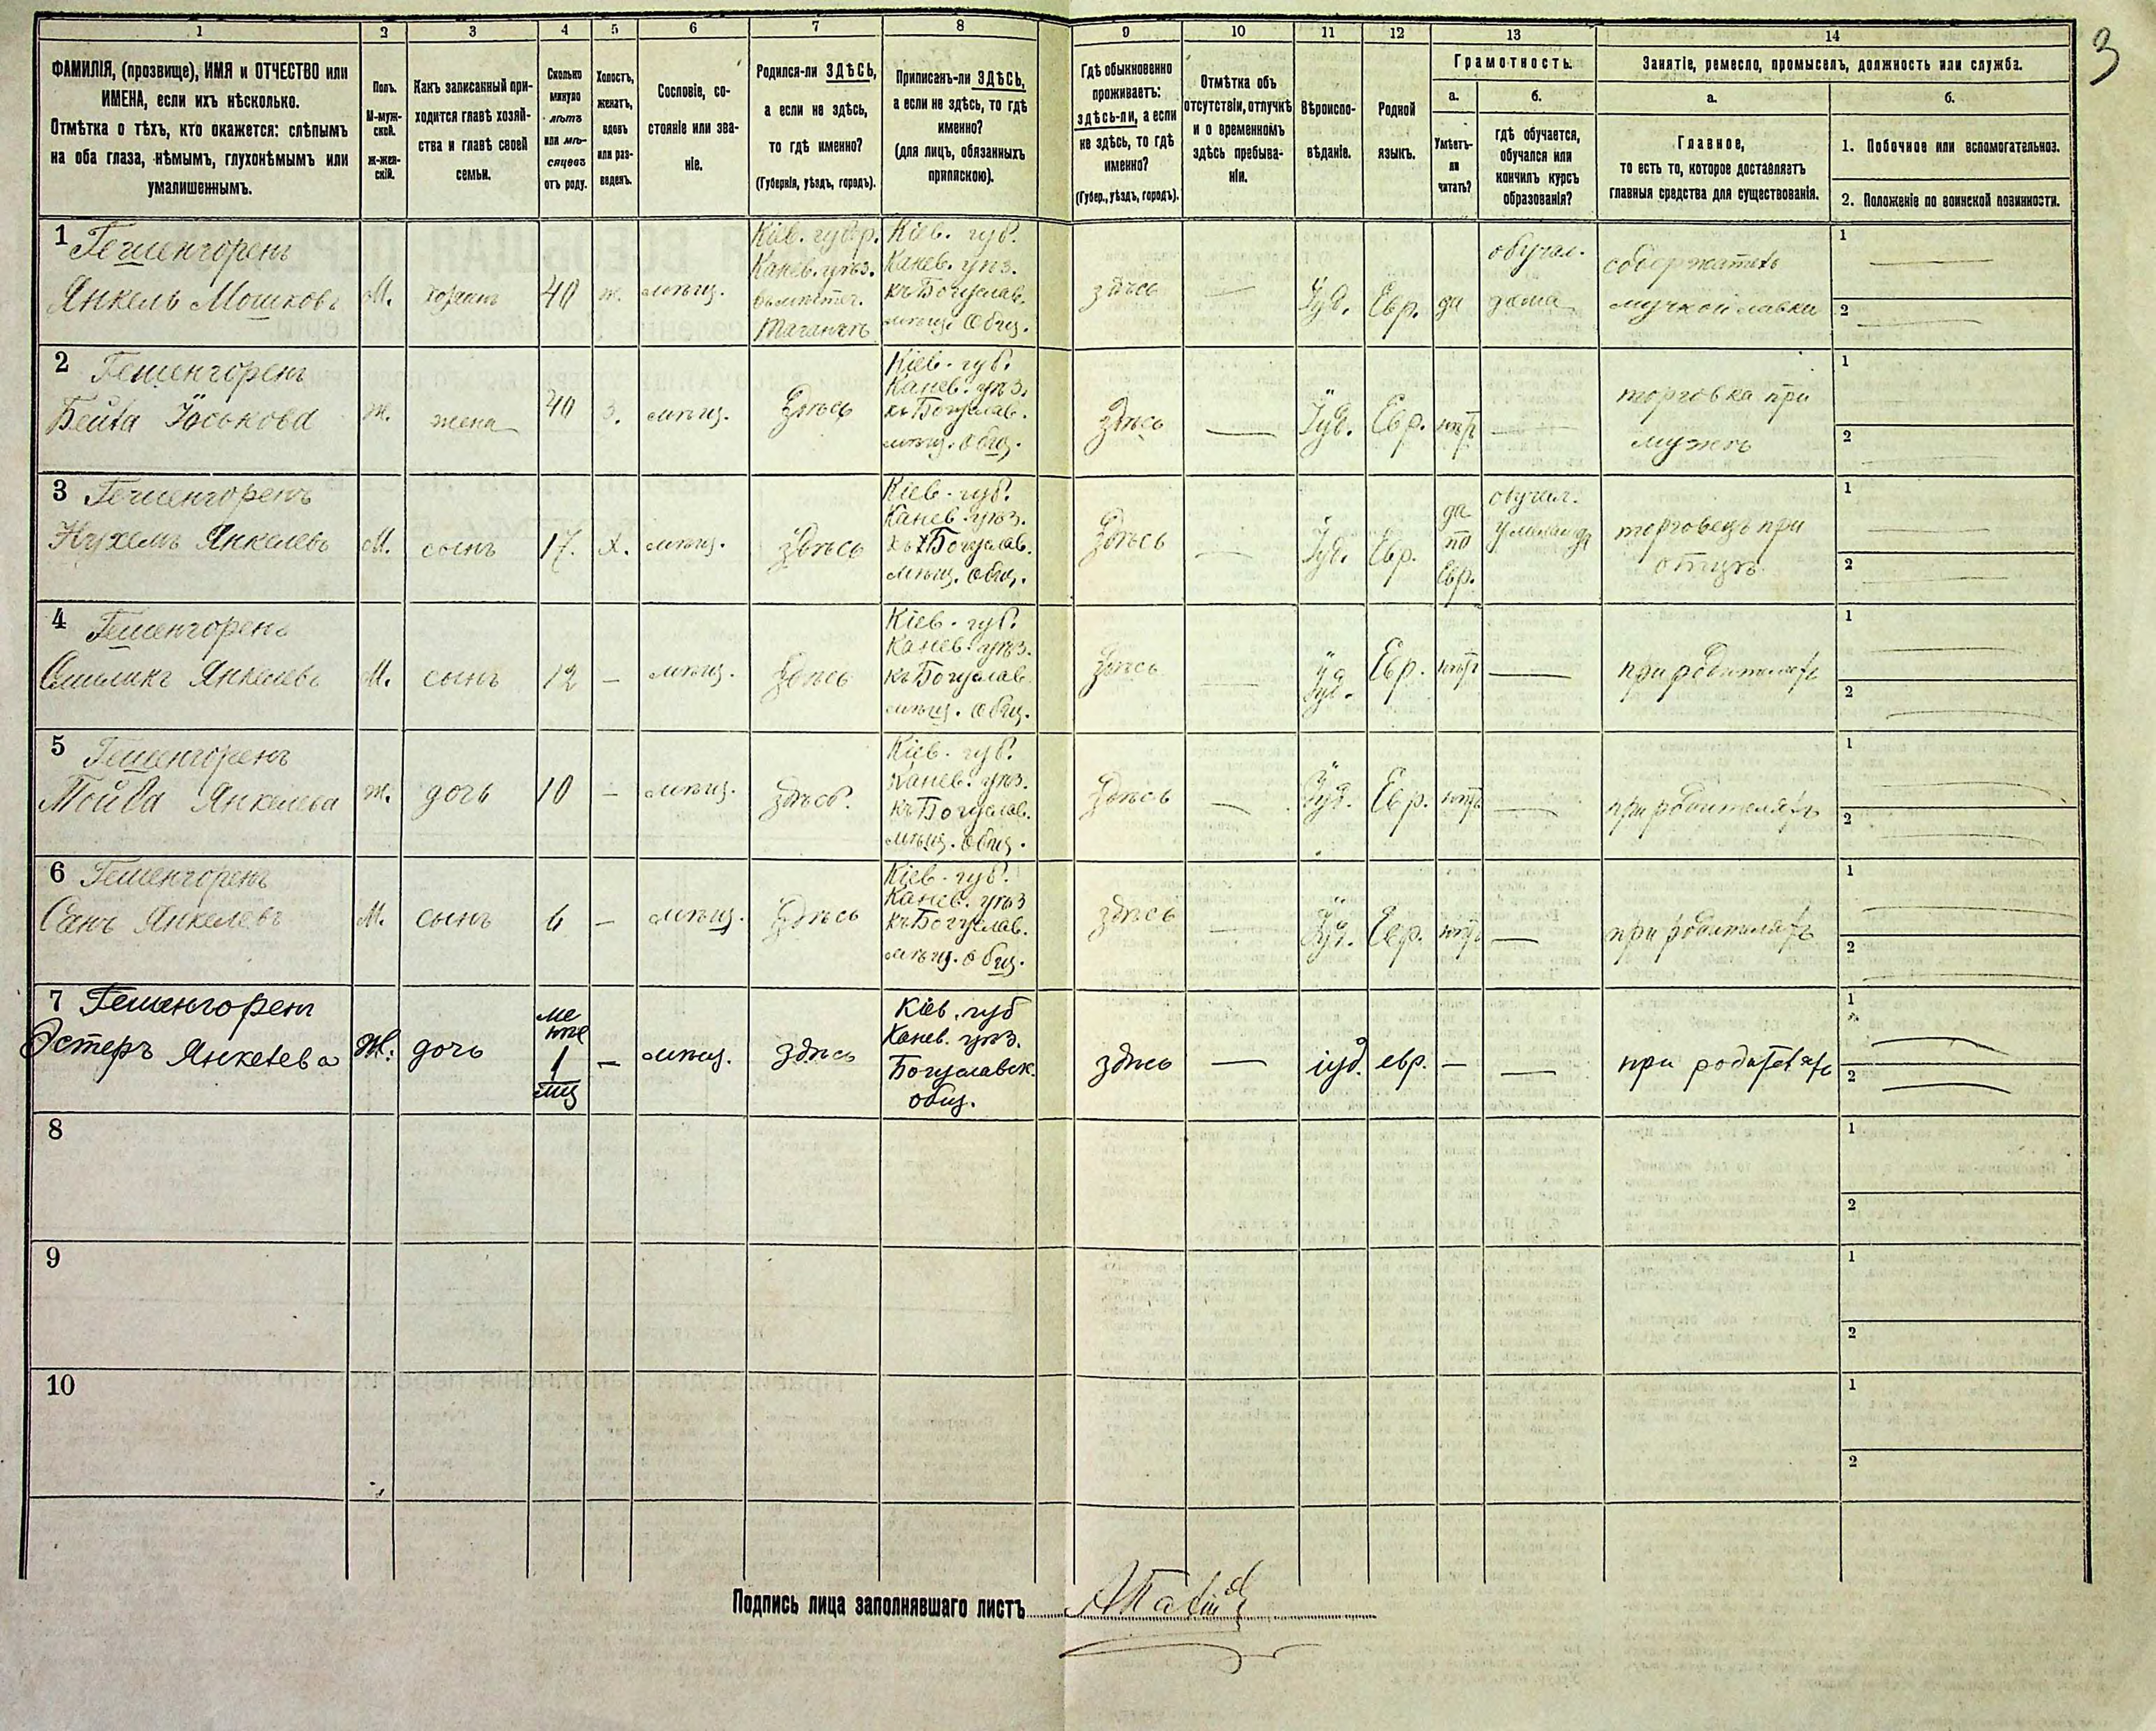 1 2 3 4 5 6 7 8 9 10 11 12 13 14
3
ФАМИЛІЯ, (прозвище), ИМЯ и ОТЧЕСТВО или
ИМЕНА, если ихъ нѣсколько.
Отмѣтка о тѣхъ, кто окажется: слѣпымъ
на оба глаза, нѣмымъ, глухонѣмымъ или
умалишеннымъ.
Полъ.
М-муж-
ской.
Ж-жен-
скій.
Какъ записанный при-
ходится главѣ хозяй-
ства и главѣ своей
семьи.
Сколько
минуло
лѣтъ
или мѣ-
сяцевъ
отъ роду.
Холостъ,
женатъ,
вдовъ
или раз-
веденъ.
Сословіе, со-
стояніе или зва-
ніе.
Родился-ли ЗДѢСЬ,
а если не здѣсь,
то гдѣ именно?
(Губернія, уѣздъ, городъ).
Приписанъ-ли ЗДѢСЬ,
а если не здѣсь, то гдѣ
именно?
(для лицъ, обязанныхъ
припискою).
Гдѣ обыкновенно
проживаетъ:
здѣсь-ли, а если
не здѣсь, то гдѣ
именно?
(Губер., уѣздъ, городъ).
Отмѣтка объ
отсутствіи, отлучкѣ
и о временномъ
здѣсь пребыва-
ніи.
Вѣроиспо-
вѣданіе.
Родной
языкъ.
Грамотность.
а.
Умѣетъ-
ли
читать?
б.
гдѣ обучается,
обучался или
кончилъ курсъ
образованія?
Занятіе, ремесло, промыселъ, должность или служба.
а.
Главное,
то есть то, которое доставляетъ
главныя средства для существованія.
б.
1. Побочное или вспомогательное.
2. Положеніе по воинской повинности.
1 Гешенгоренъ
Янкель Мошковъ
М.
хозяинъ
40
ж.
мѣщ.
Кіев. губер.
Канев. уѣз.
Таганчѣ
Кіев. губ.
Канев. уѣз.
къ Богуслав.
мѣщ. Общ.
здѣсь
—
Іуд.
Евр.
да
обучал.
дома
содержатель
мучной лавки
1 —
2 —
2 Гешенгоренъ
Бейла Іоськова
Ж.
жена
40
З.
мѣщ.
Здѣсь
Кіев. губ.
Канев. уѣз.
къ Богуслав.
мѣщ. общ.
здѣсь
—
Іуд.
Евр.
нѣт
—
торговка при
мужѣ
1 —
2 —
3 Гешенгоренъ
Нухемъ Янкелевъ
М.
сынъ
17.
Х.
мѣщ.
здѣсь
Кіев. губ.
Канев. уѣз.
къ Богуслав.
мѣщ. общ.
Здѣсь
—
Іуд.
Евр.
да
по
Евр.
обучал.
у меламда
торговецъ при
отцѣ
1 —
2 —
4 Гешенгоренъ
Шмиликъ Янкелевъ
М.
сынъ
12
—
мѣщ.
Здѣсь
Кіев. губ.
Канев. уѣз.
къ Богуслав.
мѣщ. общ.
Здѣсь
—
Іуд.
Евр.
нѣт
—
при родителяхъ
1 —
2 —
5 Гешенгоренъ
Тойба Янкелева
Ж.
дочь
10
—
мѣщ.
здѣсь.
Кіев. губ.
Канев. уѣз.
къ Богуслав.
мѣщ. общ.
Здѣсь
—
Іуд.
Евр.
нѣт
—
при родителяхъ
1 —
2 —
6 Гешенгоренъ
Янкелевъ
М.
сынъ
6
—
мѣщ.
Здѣсь
Кіев. губ.
Канев. уѣз
къ Богуслав.
мѣщ. общ.
здѣсь
—
Іуд.
Евр.
нѣт
—
при родителяхъ
1 —
2 —
7 Гешенгорен
Эстеръ Янкелева
Ж.
дочь
ме
нѣе
1
мѣц
—
мѣщ.
здѣсь
Кіев. губ
Канев. уѣз.
Богуславск.
общ.
здѣсь
—
іуд.
евр.
—
—
при родителяхъ
1 —
2 —
8
1
2
9
1
2
10
1
2
Подпись лица заполнявшаго листъ